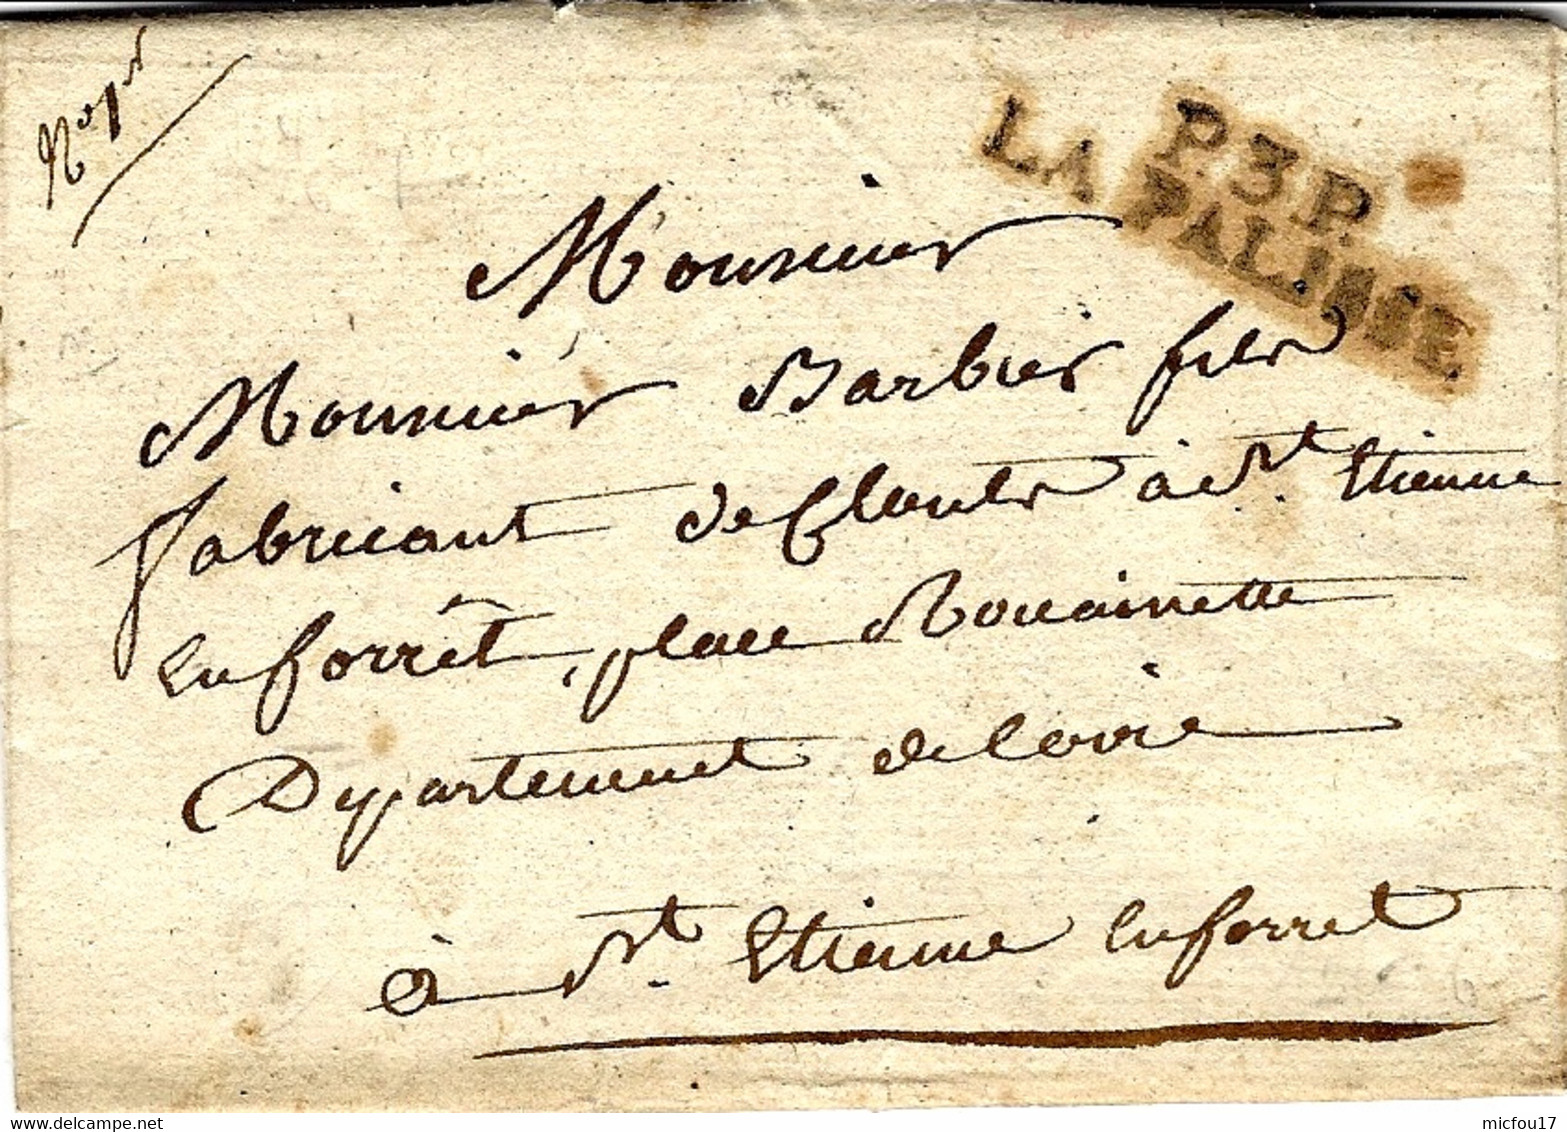 P.3.P.
LA PALISSE
Monsieur
Monsieur Barbier fils
fabricant de Clouts à St. Etienne
En forrêt, place Rouainette
Departement de Loire
à St. Etienne En forret
micfou17